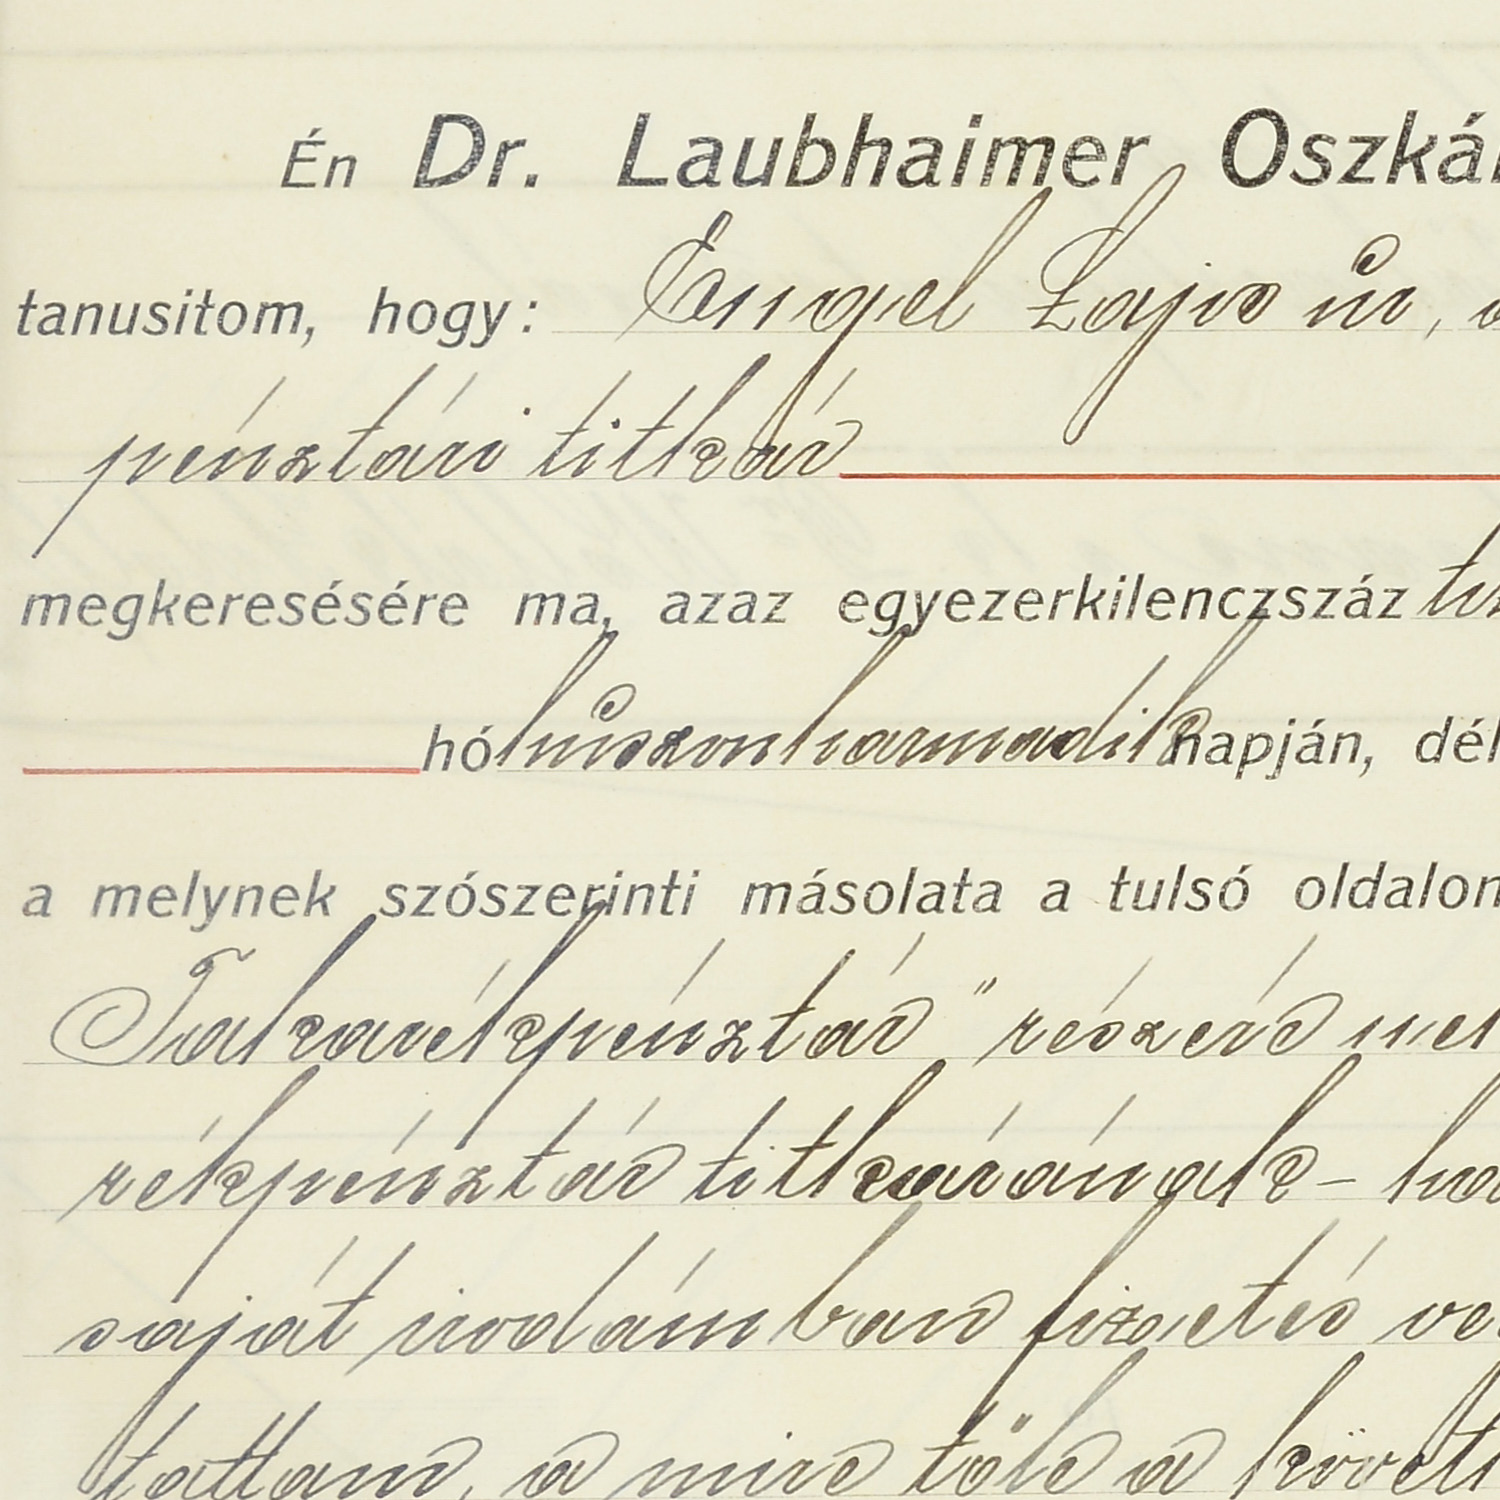 Én Dr. Laubhaimer Oszkár
tanusitom, hogy: Engel Lajos úr, a
pénztári titkár
megkeresésére ma, azaz egyezerkilenczszáz
hó huszonharmadik napján, dél
a melynek szószerinti másolata a tulsó oldalon
Takarékpénztár" részére
rékpénztár titkárának -
saját irodámban fizetés
tattam, a mire tőle a követ